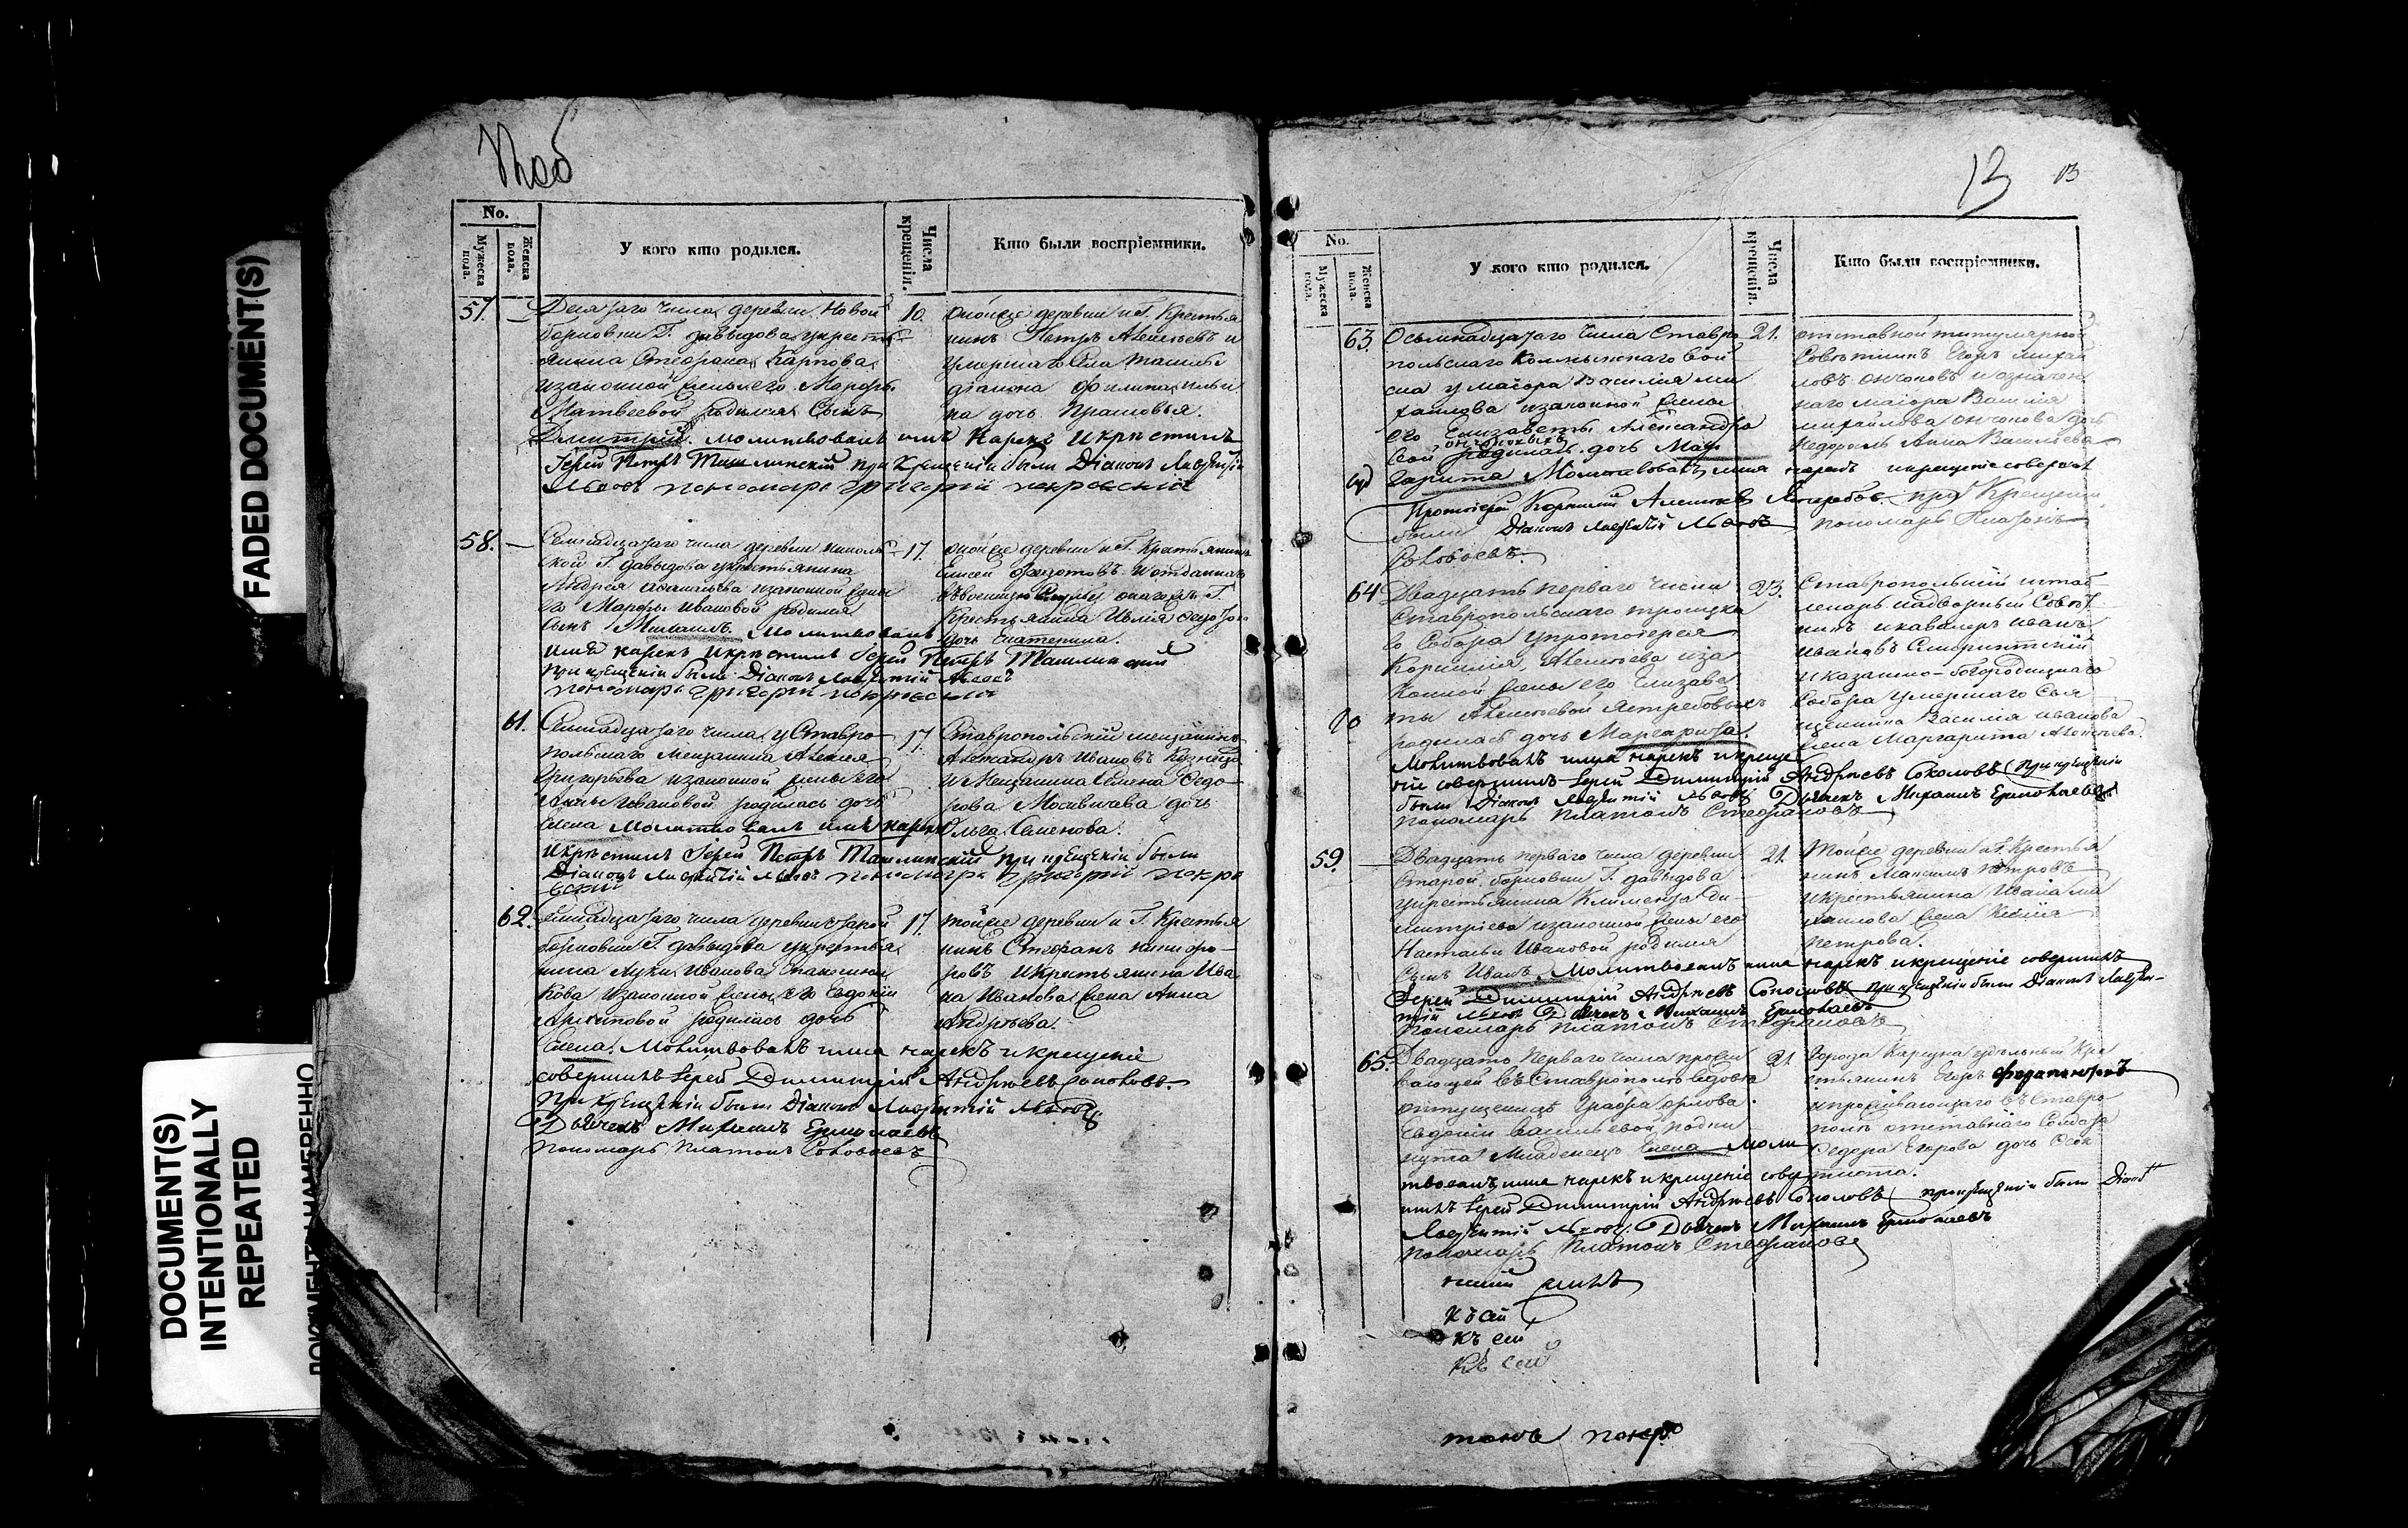 FADED DOCUMENT(S)
DOCUMENT(S)
INTENTIONALLY
REPEATED
No.
Мужеска пола.
Женска пола.
У кого кто родился.
Числа крещенія.
Кто были воспріемники.
57.
Десятаго числа деревни Новой
борковки Г. давыдова у крестъ
янина Стефана Карпова
и законной жены его Марѳы
Матвеевой родился Сынъ
Димитрій. молитвовалъ имя Нарекъ и Крестилъ
Іерей Петръ Ташлинскій при Крещеніи были Діаконъ Лаврентій
Львовъ пономарь григорій покровскій
10.
оной же деревни и Г. Крестья
нинъ Петръ Алексѣевъ и
умершаго Села Ташлы
діакона Филипа Ильи
на дочь Прасковья.
58.
Семнадцатаго числа деревни николь
ской Г. давыдова у крестьянина
Андрея и законной жены
его Марѳы ивановой родился
сынъ Михаилъ. Молитвовалъ
имя нарекъ и крестилъ Іерей Петръ Ташлинскій
при крещеніи были Діаконъ Лаврентій Львовъ
пономарь григорій покровскій
17.
оной же деревни и Г. Крестьянинъ
Елисей Федотовъ и отданнаго
въ военную Службу онаго же Г.
Крестьянина
дочь Екатерина.
61.
Семнадцатаго числа у Ставро
польскаго Мещанина Алексея
Григорьева и законной жены его
Анны Ивановой родилась дочь
Елена Молитвовалъ имя нарекъ
и крестилъ Іерей Петръ Ташлинскій при крещеніи были
Діаконъ Лаврентій Львовъ пономарь григорій покро
вскій
17.
Ставропольскій мещанинъ
Александръ Ивановъ Кузнецо
и Мещанина Семена Федо
рова Москвичева дочь
Ольга Семенова.
62.
Семнадцатаго числа деревни Старой
борковки Г. давыдова у крестья
нина Луки Иванова
кова и законной жены его Евдокіи
Архиповой родилась дочь
Елена. Молитвовалъ имя нарекъ и крещеніе
совершилъ Іерей Димитрій Андреевъ Соколовъ.
При крещеніи были Діаконъ Лаврентій Львовъ
Дьячекъ Михаилъ Ермолаевъ
Пономарь Платонъ Соловьевъ
17.
той же деревни и Г. Крестья
нинъ Стефанъ Никифо
ровъ и Крестьянина Ива
на Иванова Жена Анна
Андреева.
13
13
No.
Мужеска пола.
Женска пола.
У кого кто родился.
Числа крещенія.
Кто были воспріемники.
63.
Осьмнадцатаго числа Ставро
польскаго Колмыцкаго вой
ска у маіора Василія Ми
хайлова и законной жены
его Елизаветы Александро
вой родилась дочь Мар
гарита Молитвовалъ имя нарекъ и крещеніе совершилъ
Протоіерей Корнилій Алексѣевъ Ястребовъ. при Крещеніи
были Діаконъ Лаврентій Львовъ пономарь Платонъ
Соловьевъ.
21.
отставной титулярной
Совѣтникъ Егоръ михай
ловъ ончоковъ и означен
наго маіора Василія
михайлова ончокова дочь
недоросль Анна Васильева
64
Двадцать перваго числа
Ставропольскаго троицка
го Собора у протоіерея
Корнилія Алексѣева и за
конной жены его Елизаве
ты Алексѣевой Ястребовыхъ
родилась дочь Маргарита.
Молитвовалъ имя нарекъ и креще
ніе совершилъ Іерей Димитрій Андреевъ Соколовъ При крещеніи
были Діаконъ Лаврентій Львовъ Дьячекъ Михаилъ Ермолаевъ
пономарь Платонъ Стефановъ
23.
Ставропольскій штаб
лекарь надворный Совѣт
никъ и кавалеръ иванъ
ивановъ
и казанско-богородицкаго
Собора умершаго Свя
щенника Василія иванова
жена Маргарита Алексѣева.
59.
Двадцать перваго числа деревни
Старой борковки Г. давыдова
у крестьянина Климента Ди
митріева и законной жены его
Настасьи Ивановой родился
сынъ Иванъ. Молитвовалъ имя нарекъ и крещеніе совершилъ
Іерей Димитрій Андреевъ Соколовъ при крещеніи были Діаконъ Лаврен
тій Львовъ Дьячекъ Михаилъ Ермолаевъ
Пономарь Платонъ Стефановъ
21.
той же деревни и Г. Крестья
нинъ Максимъ Петровъ
и крестьянина Ивана Ми
хаилова жена Ксенія
петрова.
65.
Двадцать Перваго числа прожи
вающей въ Ставрополѣ вдовы
отпущеницы Графа орлова
Евдокіи Васильевой подки
нутъ Младенецъ Елена Моли
твовалъ имя нарекъ и крещеніе совер
шилъ Іерей Димитрій Андреевъ Соколовъ при крещеніи были Діаконъ
Лаврентій Львовъ. Дьячекъ Михаилъ Ермолаевъ
пономарь Платонъ Стефановъ
21
города Карсуна удѣльный Кре
стьянинъ Егоръ
и проживающаго въ Ставро
полѣ отставнаго Солдата
Федора Егорова дочь Феок
тиста.
къ сей
къ сей
къ сей